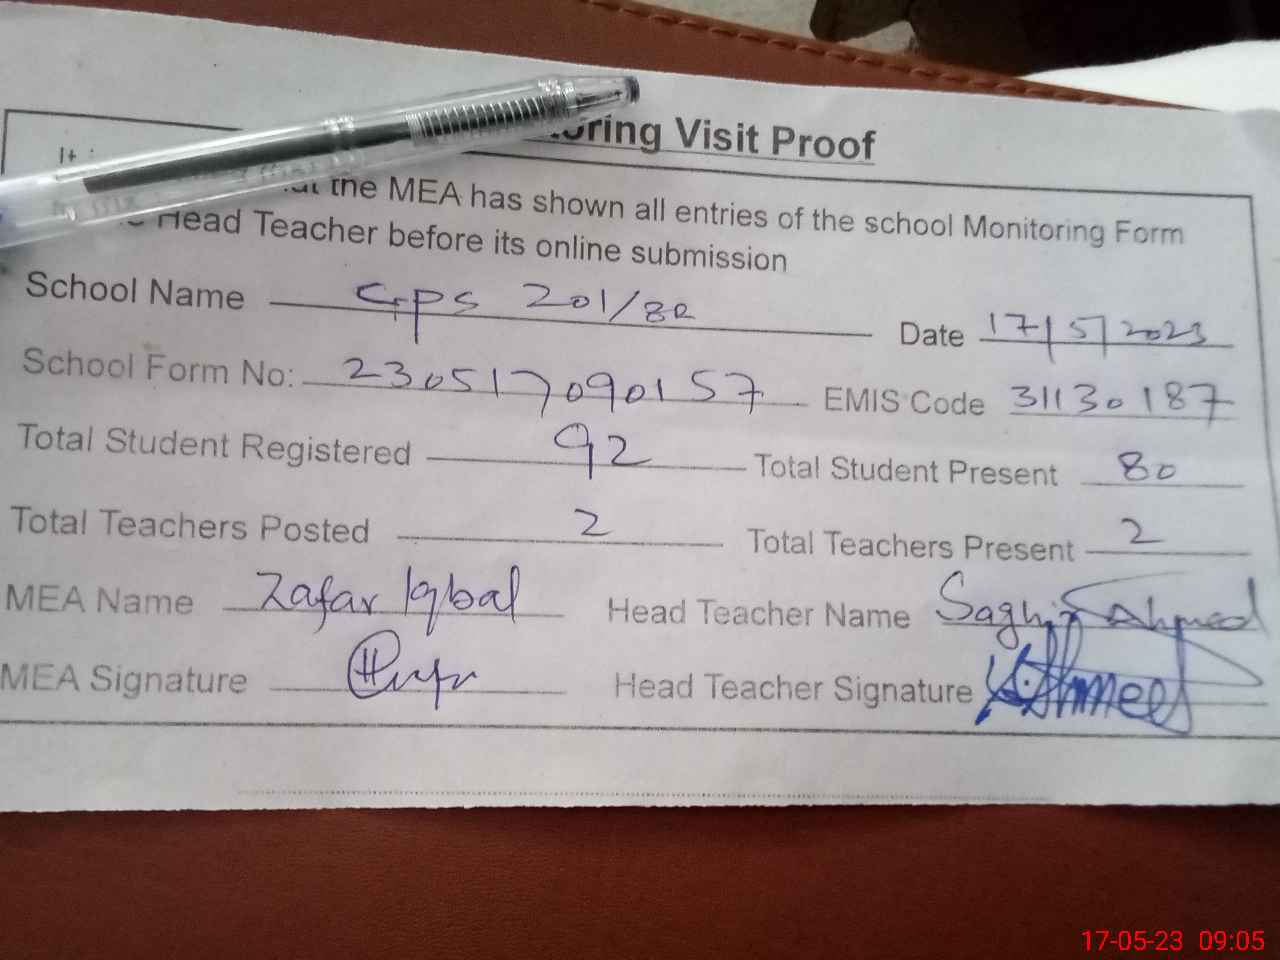 oring Visit Proof
It
the MEA has shown all entries of the school Monitoring Form
Head Teacher before its online submission
School Name GPS 201/8R Date 17/5/2023
School Form No: 230517090157 EMIS Code 31130187
Total Student Registered 92 Total Student Present 80
Total Teachers Posted 2 Total Teachers Present 2
MEA Name Zafar Iqbal Head Teacher Name Saghir Ahmed
MEA Signature Head Teacher Signature
17-05-23 09:05